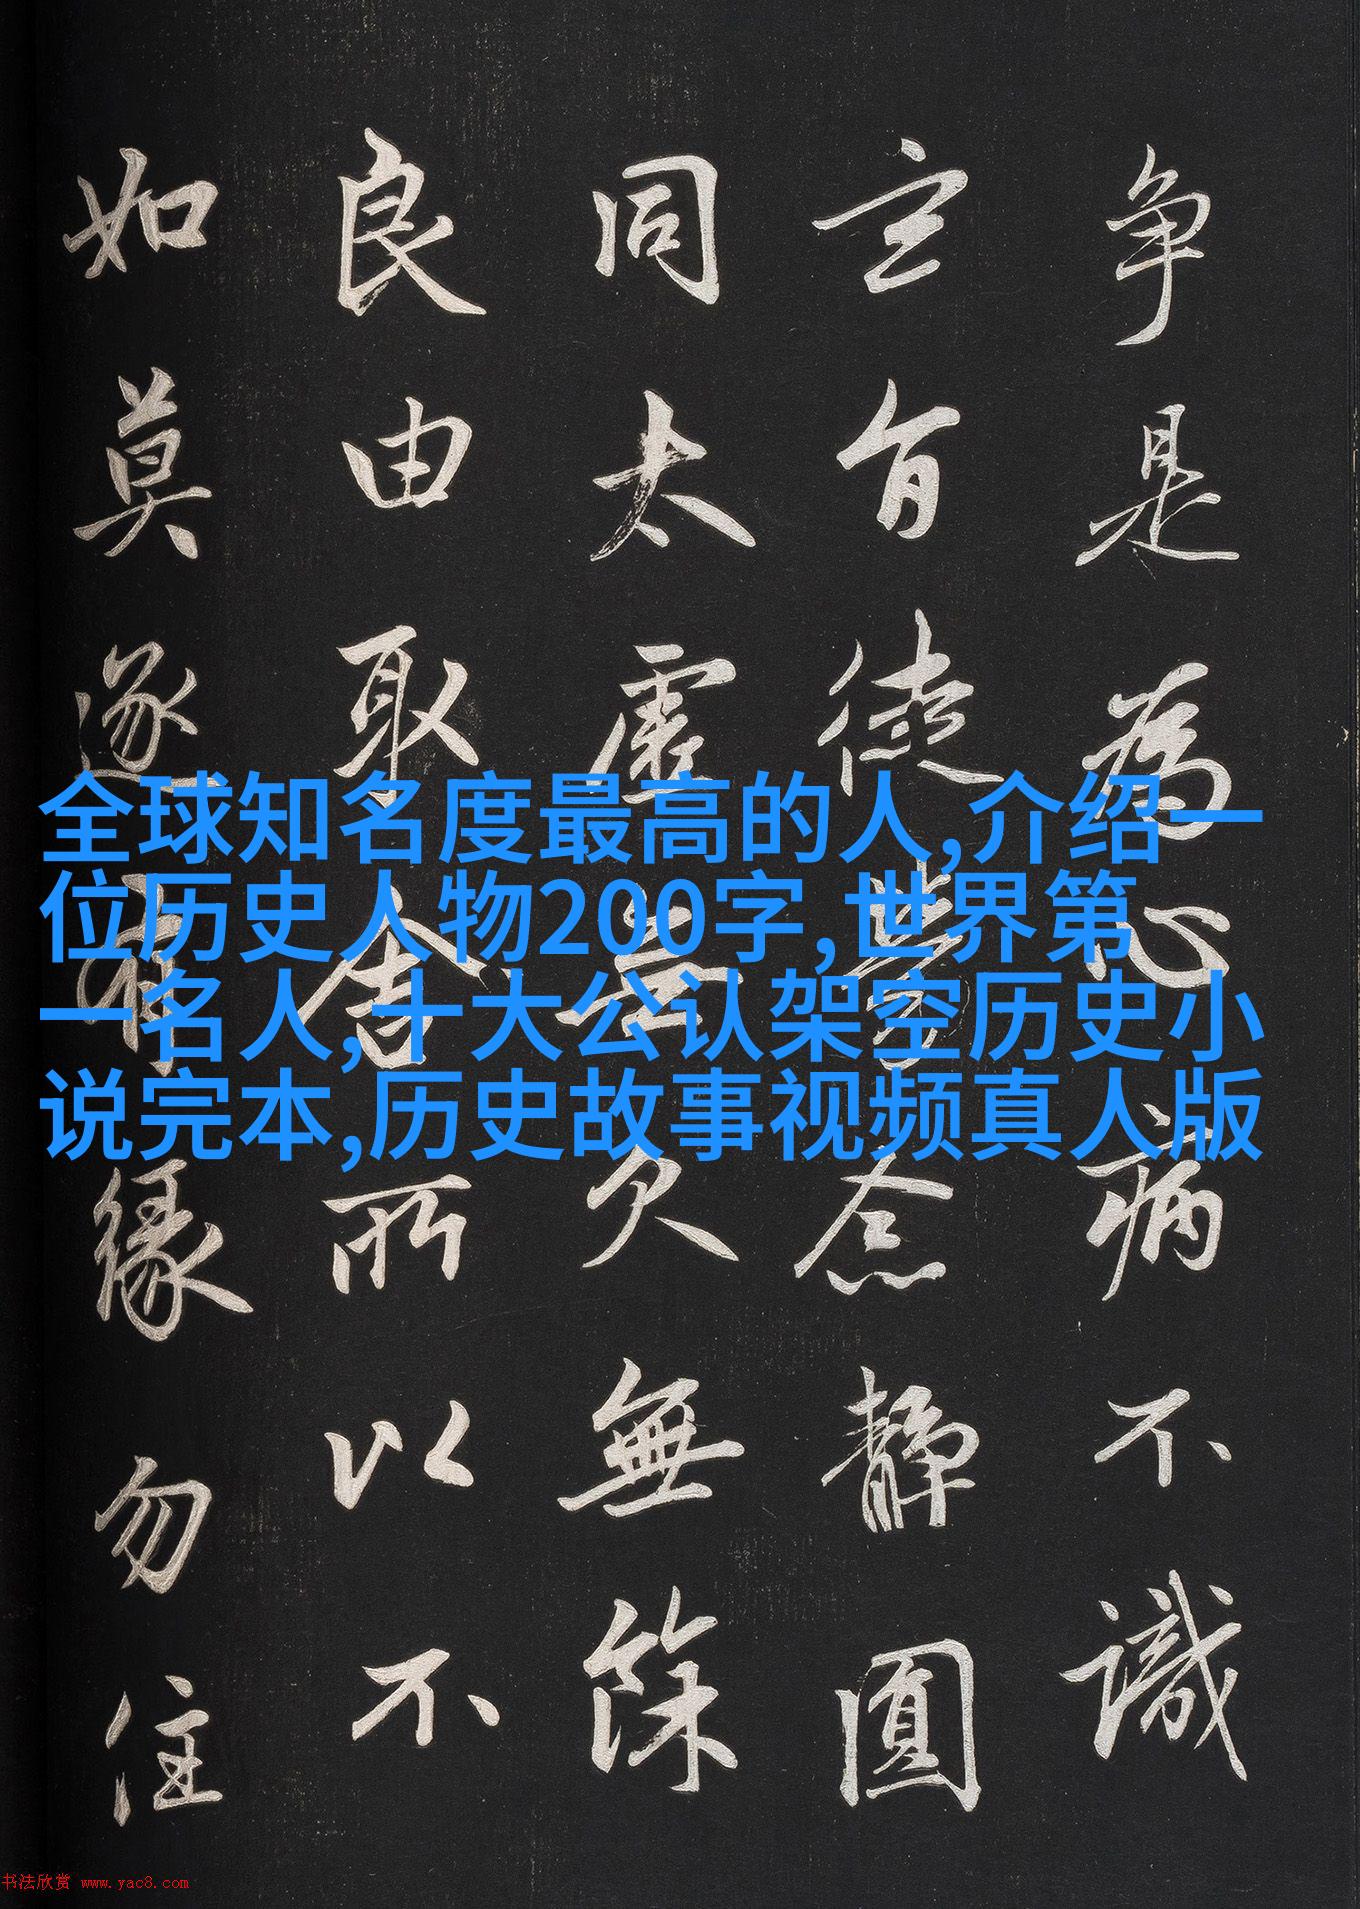 争是為心病不識
玄旨徒勞念靜圓
同太虛无欠無餘
良由取舍所以不
如莫逐有緣勿住
全球知名度最高的人,介绍一
位历史人物200字,世界第
一名人,十大公认架空历史小
说完本,历史故事视频真人版
书法欣赏 www.yac8.com